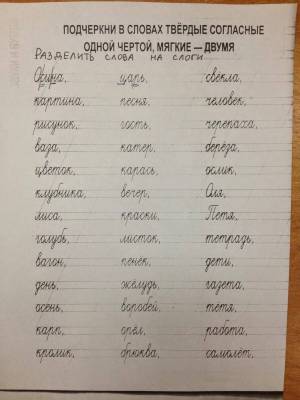 ПОДЧЕРКНИ В СЛОВАХ ТВЁРДЫЕ СОГЛАСНЫЕ
ОДНОЙ ЧЕРТОЙ, МЯГКИЕ — ДВУМЯ
РАЗДЕЛИТЬ СЛОВА НА СЛОГИ
царь, свёкла,
картина, песня, человек,
рисунок, гость, черепаха,
ваза, катер, берёза,
цветок, карась, ослик,
клубника, вечер, Оля,
лиса, краски, Петя,
голубь, листок, тетрадь,
вагон, пенёк, дети,
день, жёлудь, газета,
осень, воробей, тётя,
карп, орёл, работа,
кролик, брюква, самолёт,